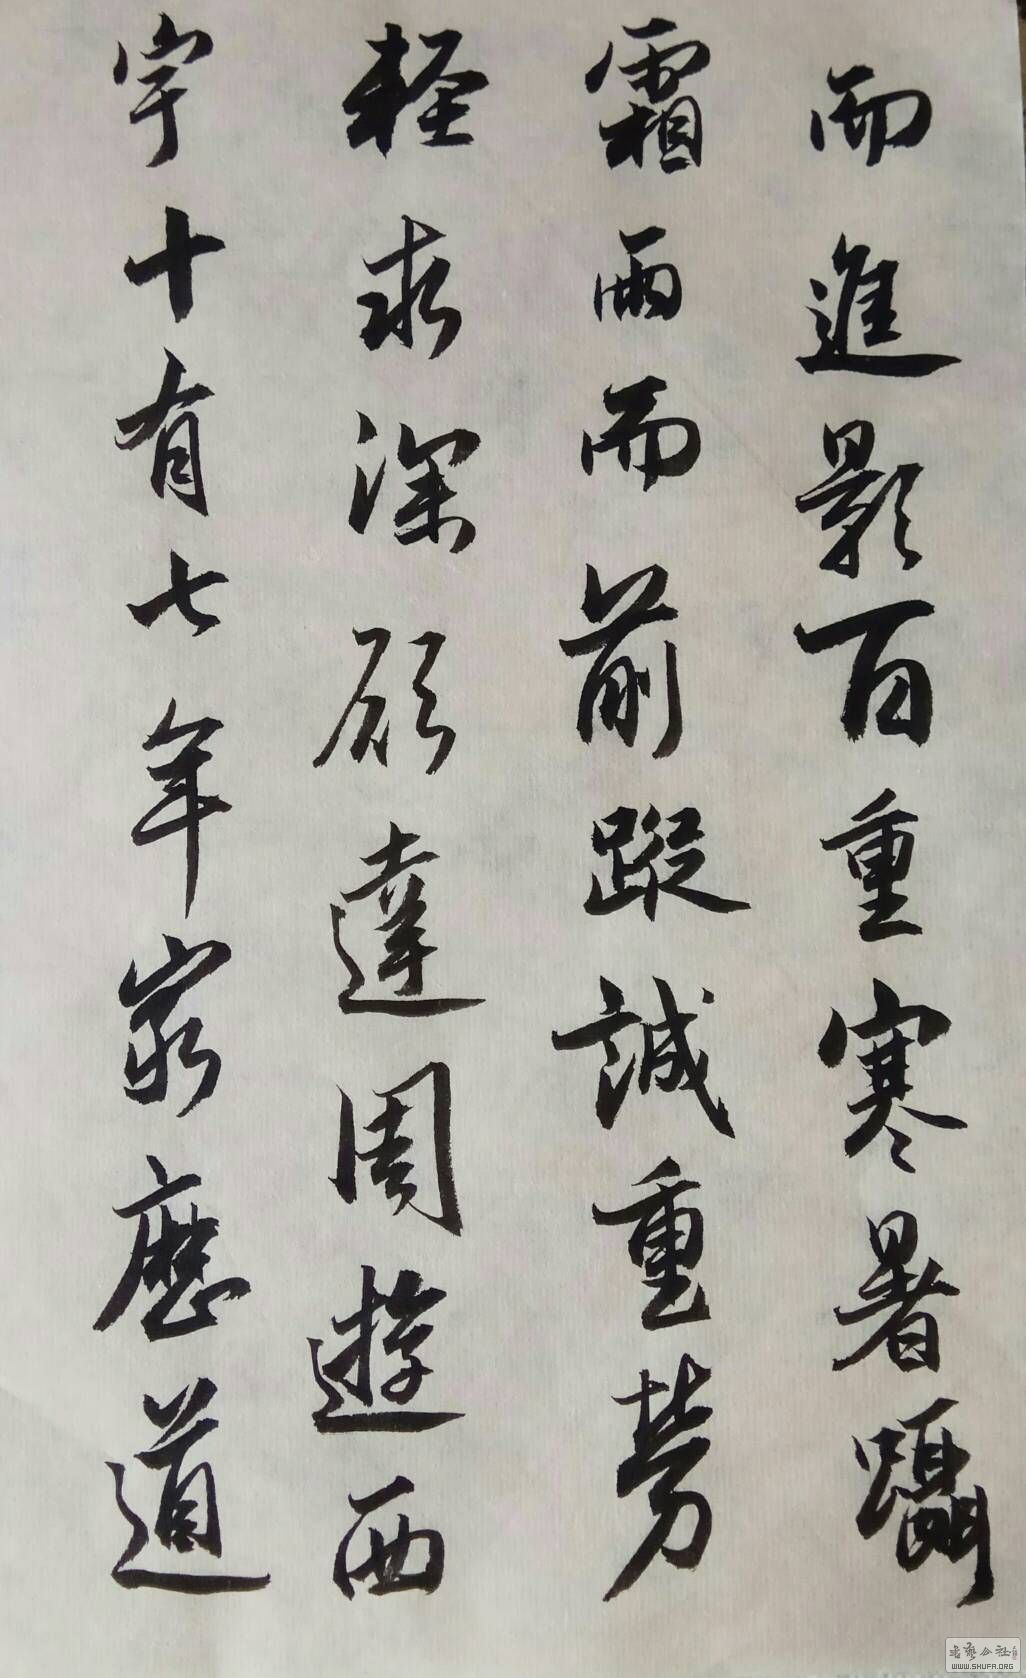 而進影百重寒暑躡
霜雨而前蹤誠重勞
輕求深願達周遊西
宇十有七年窮歷道
WWW.SHUFA.ORG